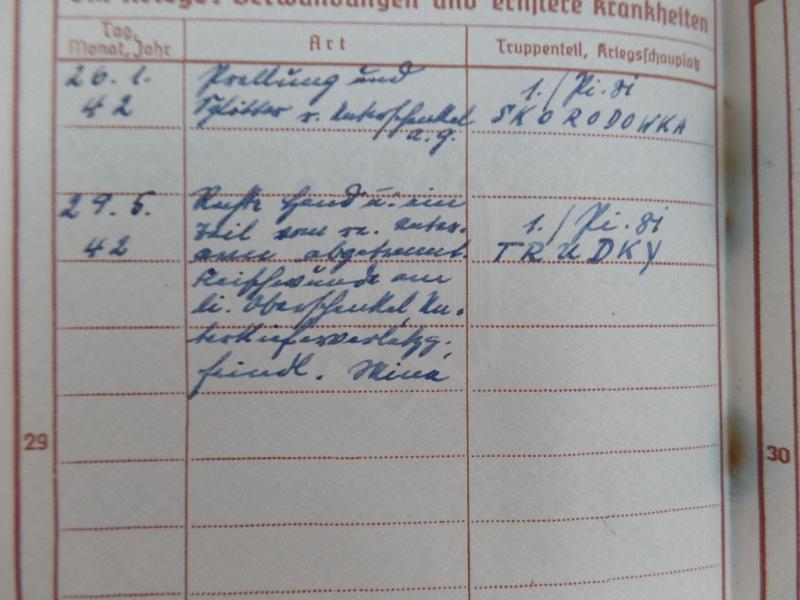 Im Kriege: Verwundungen und ernstere Krankheiten
Tag, Monat, Jahr
Art
Truppenteil, Kriegsschauplatz
26. 1. 42
Prellung und
Splitter r. Unterschenkel
a. g.
1. / Pi. 81
SKORODOWKA
29. 5. 42
Rechte Hand u. ein
Teil vom re. Unter-
arm abgetrennt.
Fleischwunde am
li. Oberschenkel, Un-
terkieferverletzg.
feindl. Mine
1. / Pi. 81
TRUDKY
29
30